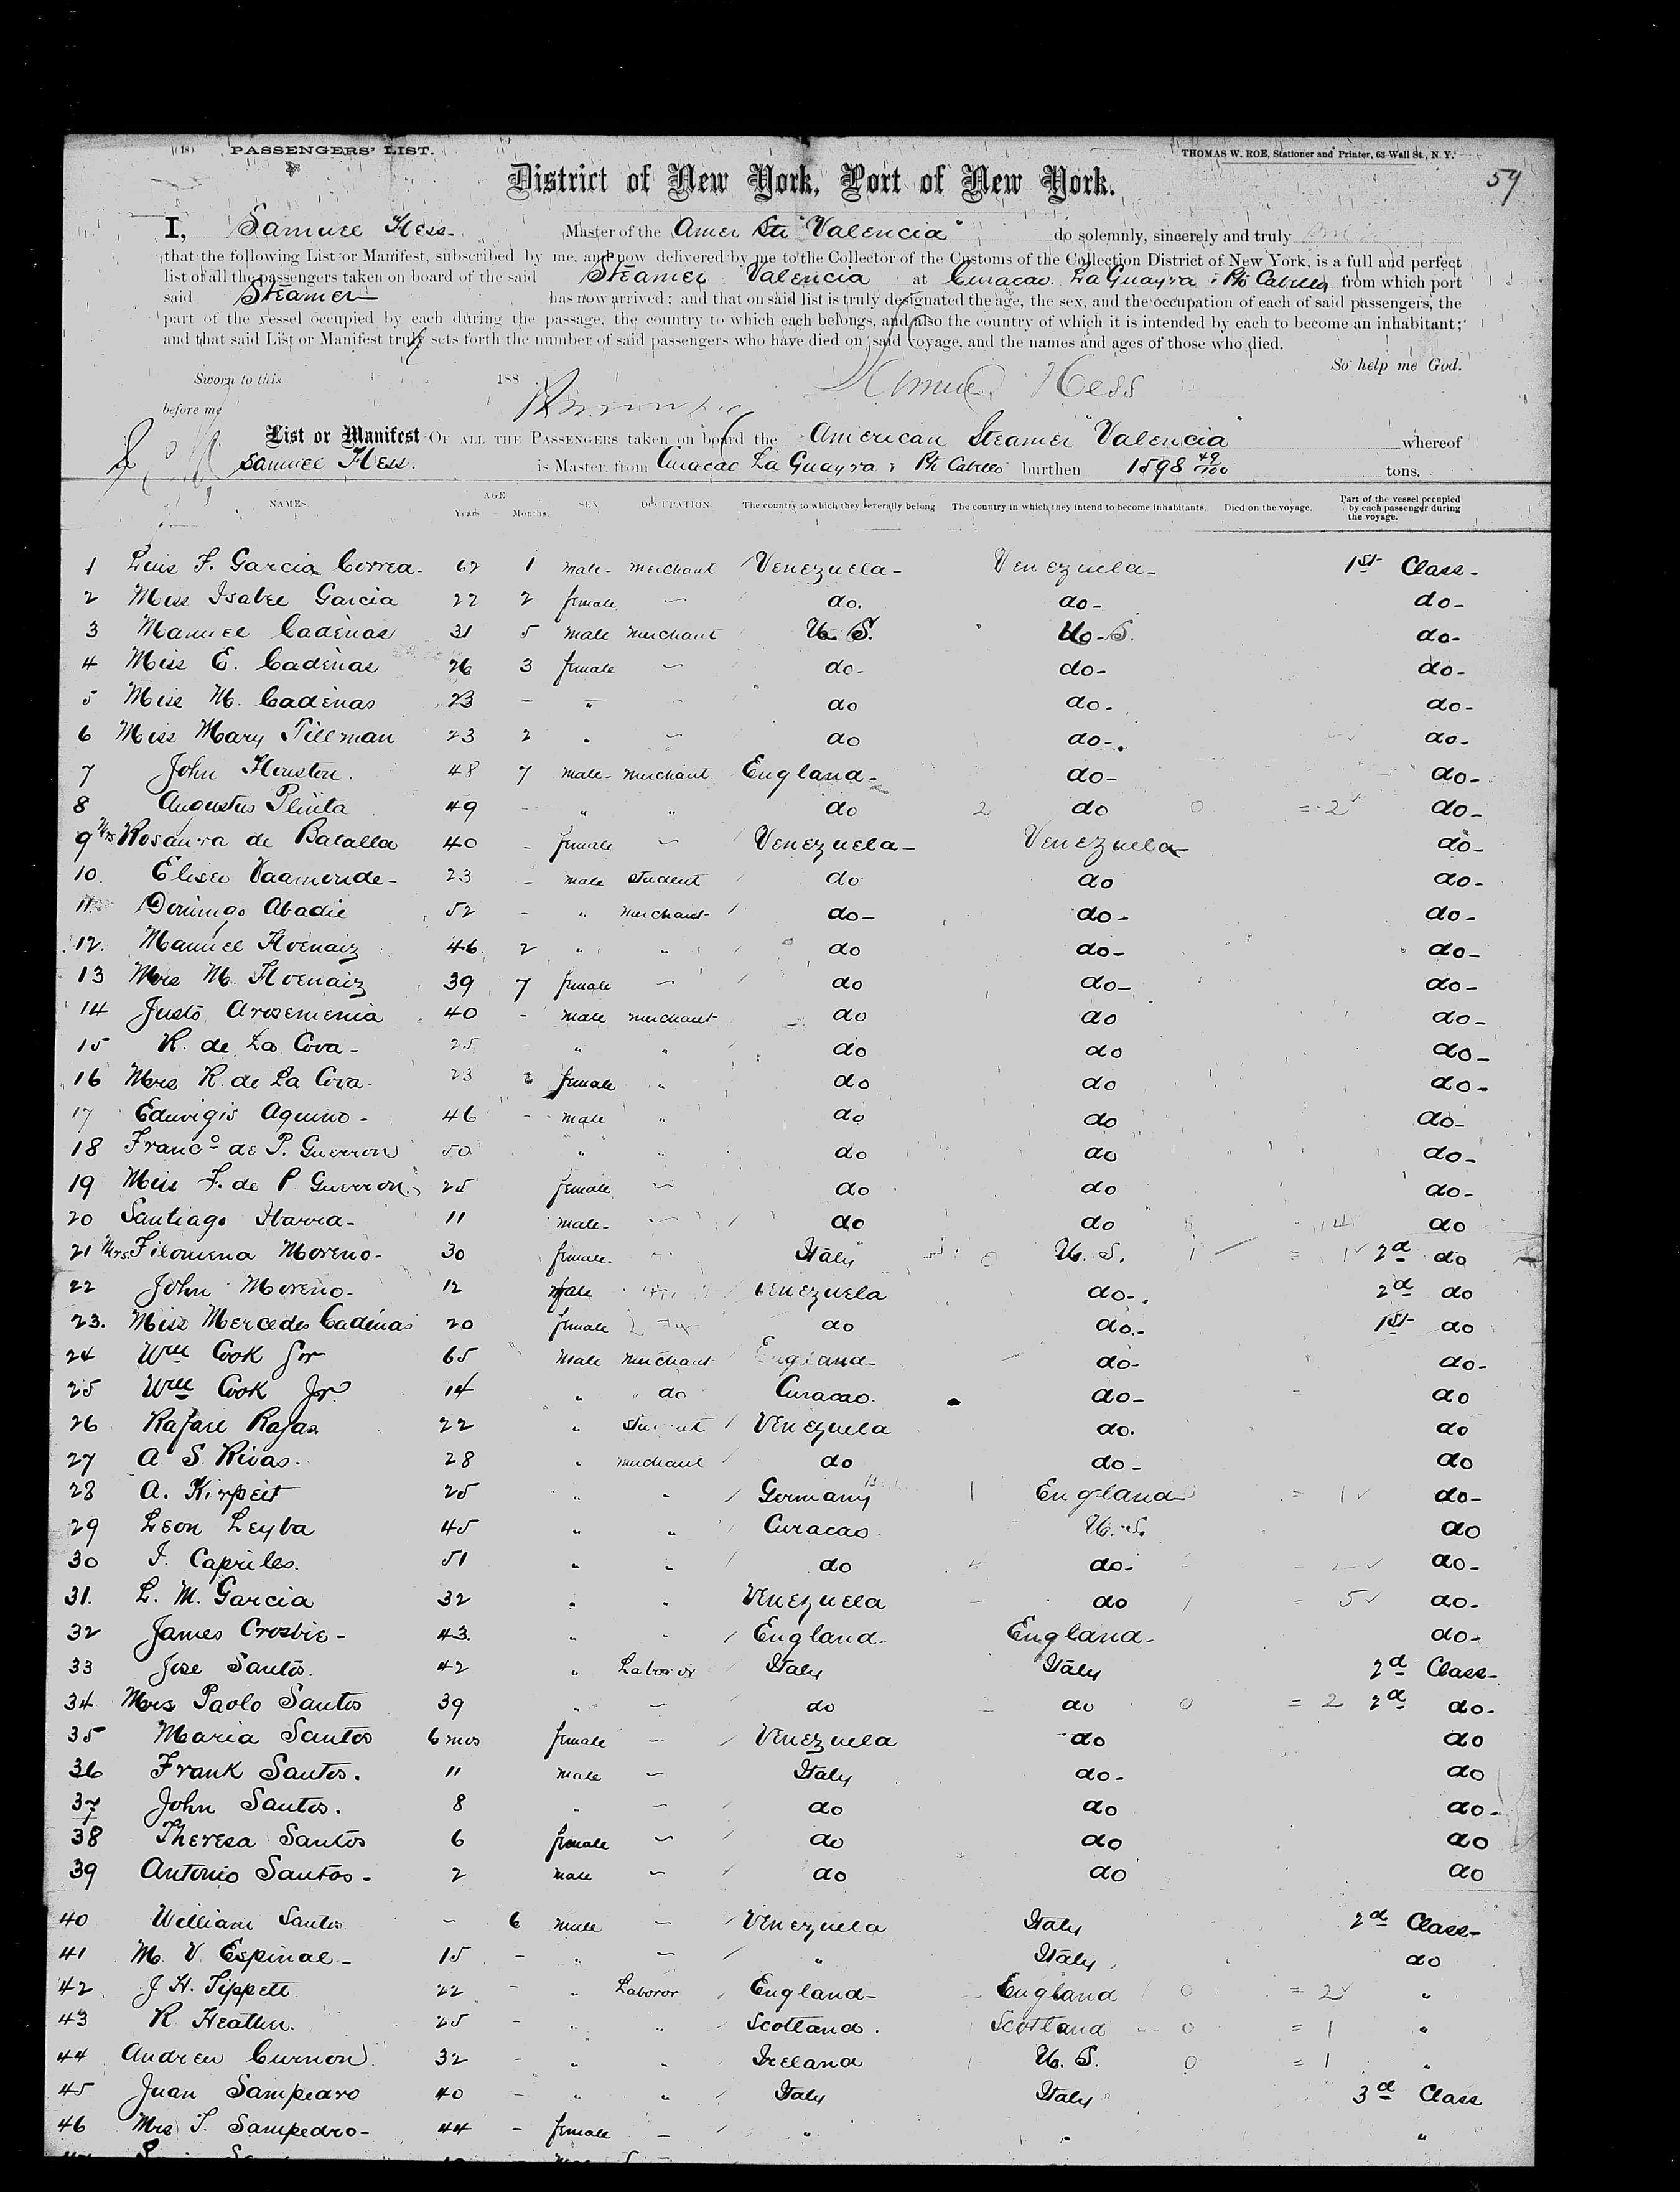 (18) PASSENGERS' LIST. THOMAS W. ROE, Stationer and Printer, 63 Wall St., N. Y.
District of New York, Port of New York. 59
I, Samuel Hess Master of the Amer Str "Valencia" do solemnly, sincerely and truly
that the following List or Manifest, subscribed by me, and now delivered by me to the Collector of the Customs of the Collection District of New York, is a full and perfect
list of all the passengers taken on board of the said Steamer Valencia at Curacao. La Guayra & Pto Cabello from which port
said Steamer has now arrived; and that on said list is truly designated the age, the sex, and the occupation of each of said passengers, the
part of the vessel occupied by each during the passage, the country to which each belongs, and also the country of which it is intended by each to become an inhabitant;
and that said List or Manifest truly sets forth the number of said passengers who have died on said voyage, and the names and ages of those who died.
So help me God.
Sworn to this 188 Samuel Hess
before me
List or Manifest OF ALL THE PASSENGERS taken on board the American Steamer "Valencia" whereof
Samuel Hess. is Master, from Curacao La Guayra & Pto Cabello burthen 1598 49/100 tons.
NAMES. AGE Years Months. SEX OCCUPATION. The country to which they severally belong The country in which they intend to become inhabitants. Died on the voyage. Part of the vessel occupied by each passenger during the voyage.
1 Luis F. Garcia Correa- 62 1 male- merchant Venezuela- Venezuela- 1st Class-
2 Miss Isabel Garcia 22 2 female " do. do- do-
3 Manuel Cadenas 31 5 male merchant U. S. U. S. do-
4 Miss E. Cadenas 26 3 female " do- do- do-
5 Miss M. Cadenas 23 - " do do- do-
6 Miss Mary Tillman 23 2 " " do do- do-
7 John Houston. 48 7 male- merchant England- do- do-
8 Augustus Plinta 49 - " " do 2 do 0 = 2 do-
9 Mrs Rosaura de Batalla 40 - female " Venezuela- Venezuela- do-
10. Eliseo Vaamonde- 23 - male student do do do-
11. Domingo Abadie 52 - " merchant- do- do- do-
12. Manuel Hoenaiz 46 2 " " do do- do-
13 Mrs M. Hoenaiz 39 7 female " do do- do-
14 Justo Arosemenia 40 - male merchant do do do-
15 R. de La Cova- 25 - " " do do do-
16 Mrs R. de La Cova- 23 2 female " do do do-
17 Eduvigis Aquino- 46 - male " do do do-
18 Franco de P. Guerron 50 " " do do do-
19 Miss F. de P. Guerron 25 female " do do do-
20 Santiago Ibarra- 11 male- " do do 14 do
21 Mrs. Filomena Moreno- 30 female- " Italy U. S. = 1 2d do
22 John Moreno- 12 male Venezuela do- 2d do
23. Miss Mercedes Cadenas 20 female do do- 1st do
24 Wm Cook Sr 65 male merchant England- do- do-
25 Wm Cook Jr. 14 " do Curacao. do- do
26 Rafael Rojas 22 " student Venezuela do. do
27 A S. Rivas. 28 " merchant do do- do
28 A. Kirpeit 25 " " Germany 1 England = 1 do-
29 Leon Leyba 45 " " Curacao U. S. do
30 I. Capriles. 51 " " do do- do-
31. L. M. Garcia 32 " " Venezuela do = 5 do-
32 James Crosbie- 43. " " England- England- do-
33 Jose Santos. 42 " Laboror Italy Italy 2d Class-
34 Mrs Paolo Santos 39 " " do do 0 = 2 2d do-
35 Maria Santos 6 mos female - Venezuela do do
36 Frank Santos. 11 male - Italy do- do
37 John Santos. 8 " - do do do-
38 Theresa Santos 6 female " do do do
39 Antonio Santos- 2 male - do do do
40 William Santos - 6 male - Venezuela Italy 2d Class-
41 M. V. Espinal- 15 - " - " Italy do
42. J H. Tippett 22 - " Laboror England- England 0 = 2 "
43 R. Heatten. 25 - " " Scotland. Scotland 0 = 1 "
44 Andrew Curnon 32 - " " Ireland U. S. 0 = 1 "
45 Juan Sampedro 40 - " " Italy Italy 3d Class
46 Mrs T. Sampedro- 44 - female - " " "